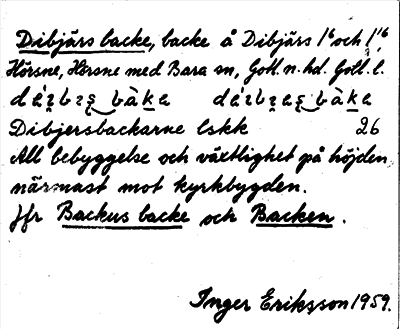 Dibjärs backe, backe å Dibjärs 1⁶ och 1¹⁶
Hörsne, Hörsne med Bara sn, Gotl. n. hd. Gotl. l.
Dibjersbackarne lskk 26
All bebyggelse och växtlighet på höjden
närmast mot kyrkbygden.
Jfr Backus backe och Backen.
Inger Eriksson 1959.